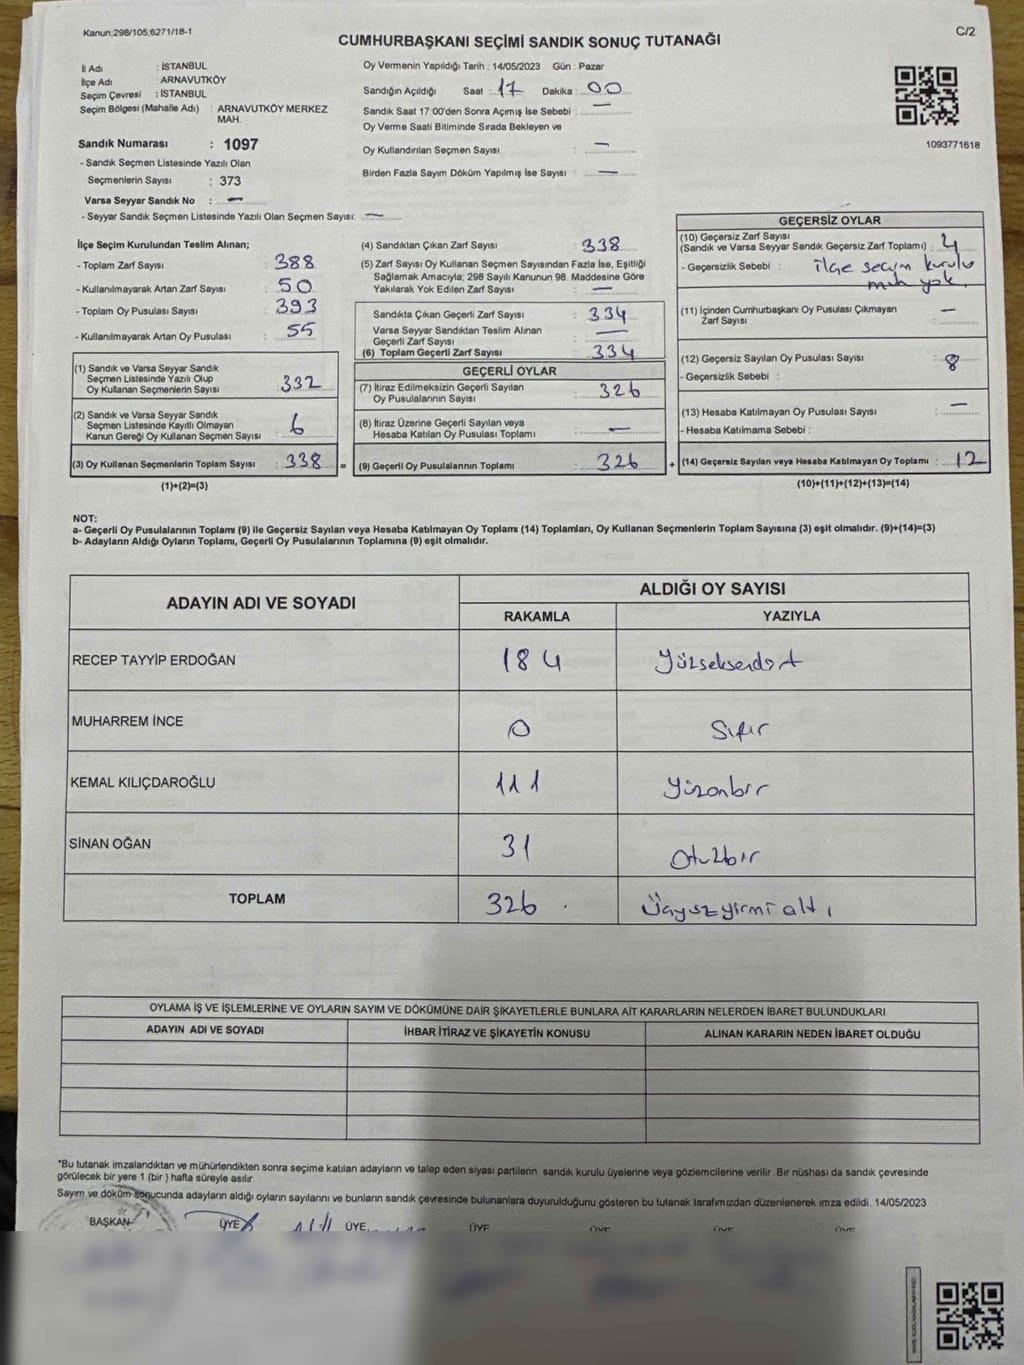 Kanun:298/105,6271/18-1
C/2
CUMHURBAŞKANI SEÇİMİ SANDIK SONUÇ TUTANAĞI
İl Adı : İSTANBUL
İlçe Adı : ARNAVUTKÖY
Seçim Çevresi : İSTANBUL
Seçim Bölgesi (Mahalle Adı) : ARNAVUTKÖY MERKEZ
MAH.
Sandık Numarası : 1097
- Sandık Seçmen Listesinde Yazılı Olan
Seçmenlerin Sayısı : 373
Varsa Seyyar Sandık No : —
- Seyyar Sandık Seçmen Listesinde Yazılı Olan Seçmen Sayısı: —
Oy Vermenin Yapıldığı Tarih : 14/05/2023 Gün : Pazar
Sandığın Açıldığı Saat : 17 Dakika : 00
Sandık Saat 17:00'den Sonra Açımış İse Sebebi : —
Oy Verme Saati Bitiminde Sırada Bekleyen ve
Oy Kullandırılan Seçmen Sayısı : —
Birden Fazla Sayım Döküm Yapılmış İse Sayısı : —
1093771618
İlçe Seçim Kurulundan Teslim Alınan;
- Toplam Zarf Sayısı : 388
- Kullanılmayarak Artan Zarf Sayısı : 50
- Toplam Oy Pusulası Sayısı : 393
- Kullanılmayarak Artan Oy Pusulası : 55
(1) Sandık ve Varsa Seyyar Sandık
Seçmen Listesinde Yazılı Olup
Oy Kullanan Seçmenlerin Sayısı : 332
(2) Sandık ve Varsa Seyyar Sandık
Seçmen Listesinde Kayıtlı Olmayan
Kanun Gereği Oy Kullanan Seçmen Sayısı : 6
(3) Oy Kullanan Seçmenlerin Toplam Sayısı : 338 =
(1)+(2)=(3)
(4) Sandıktan Çıkan Zarf Sayısı : 338
(5) Zarf Sayısı Oy Kullanan Seçmen Sayısından Fazla İse, Eşitliği
Sağlamak Amacıyla; 298 Sayılı Kanunun 98. Maddesine Göre
Yakılarak Yok Edilen Zarf Sayısı : —
Sandıkta Çıkan Geçerli Zarf Sayısı : 334
Varsa Seyyar Sandıktan Teslim Alınan
Geçerli Zarf Sayısı : —
(6) Toplam Geçerli Zarf Sayısı : 334
GEÇERLİ OYLAR
(7) İtiraz Edilmeksizin Geçerli Sayılan
Oy Pusulalarının Sayısı : 326
(8) İtiraz Üzerine Geçerli Sayılan veya
Hesaba Katılan Oy Pusulası Toplamı : —
(9) Geçerli Oy Pusulalarının Toplamı : 326 +
GEÇERSİZ OYLAR
(10) Geçersiz Zarf Sayısı
(Sandık ve Varsa Seyyar Sandık Geçersiz Zarf Toplamı) : 4
- Geçersizlik Sebebi : ilçe seçim kurulu
müh yok.
(11) İçinden Cumhurbaşkanı Oy Pusulası Çıkmayan
Zarf Sayısı : —
(12) Geçersiz Sayılan Oy Pusulası Sayısı : 8
- Geçersizlik Sebebi :
(13) Hesaba Katılmayan Oy Pusulası Sayısı : —
- Hesaba Katılmama Sebebi :
(14) Geçersiz Sayılan veya Hesaba Katılmayan Oy Toplamı : 12
(10)+(11)+(12)+(13)=(14)
NOT:
a- Geçerli Oy Pusulalarının Toplamı (9) ile Geçersiz Sayılan veya Hesaba Katılmayan Oy Toplamı (14) Toplamları, Oy Kullanan Seçmenlerin Toplam Sayısına (3) eşit olmalıdır. (9)+(14)=(3)
b- Adayların Aldığı Oyların Toplamı, Geçerli Oy Pusulalarının Toplamına (9) eşit olmalıdır.
ADAYIN ADI VE SOYADI
ALDIĞI OY SAYISI
RAKAMLA YAZIYLA
RECEP TAYYİP ERDOĞAN 184 Yüzseksendört
MUHARREM İNCE 0 Sıfır
KEMAL KILIÇDAROĞLU 111 Yüzonbir
SİNAN OĞAN 31 Otuzbir
TOPLAM 326 Üçyüzyirmialtı
OYLAMA İŞ VE İŞLEMLERİNE VE OYLARIN SAYIM VE DÖKÜMÜNE DAİR ŞİKAYETLERLE BUNLARA AİT KARARLARIN NELERDEN İBARET BULUNDUKLARI
ADAYIN ADI VE SOYADI İHBAR İTİRAZ VE ŞİKAYETİN KONUSU ALINAN KARARIN NEDEN İBARET OLDUĞU
*Bu tutanak imzalandıktan ve mühürlendikten sonra seçime katılan adayların ve talep eden siyasi partilerin sandık kurulu üyelerine veya gözlemcilerine verilir. Bir nüshası da sandık çevresinde
görülecek bir yere 1 (bir ) hafta süreyle asılır.
Sayım ve döküm sonucunda adayların aldığı oyların sayılarını ve bunların sandık çevresinde bulunanlara duyurulduğunu gösteren bu tutanak tarafımızdan düzenlenerek imza edildi. 14/05/2023
BAŞKAN ÜYE ÜYE ÜYE ÜYE ÜYE ÜYE